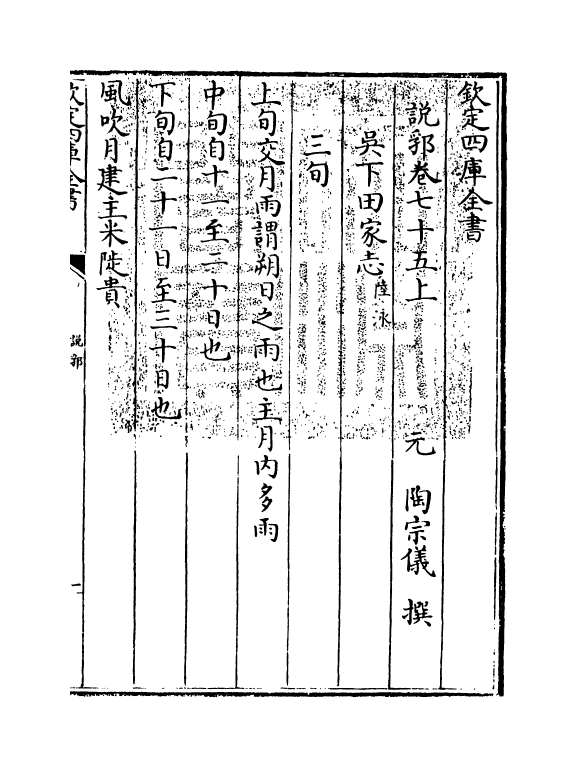 欽定四庫全書
說郛卷七十五上　元　陶宗儀　撰
吳下田家志陸泳
三旬
上旬交月雨謂朔日之雨也主月內多雨
中旬自十一至二十日也
下旬自二十一日至三十日也
風吹月建主米陡貴
欽定四庫全書
說郛
一